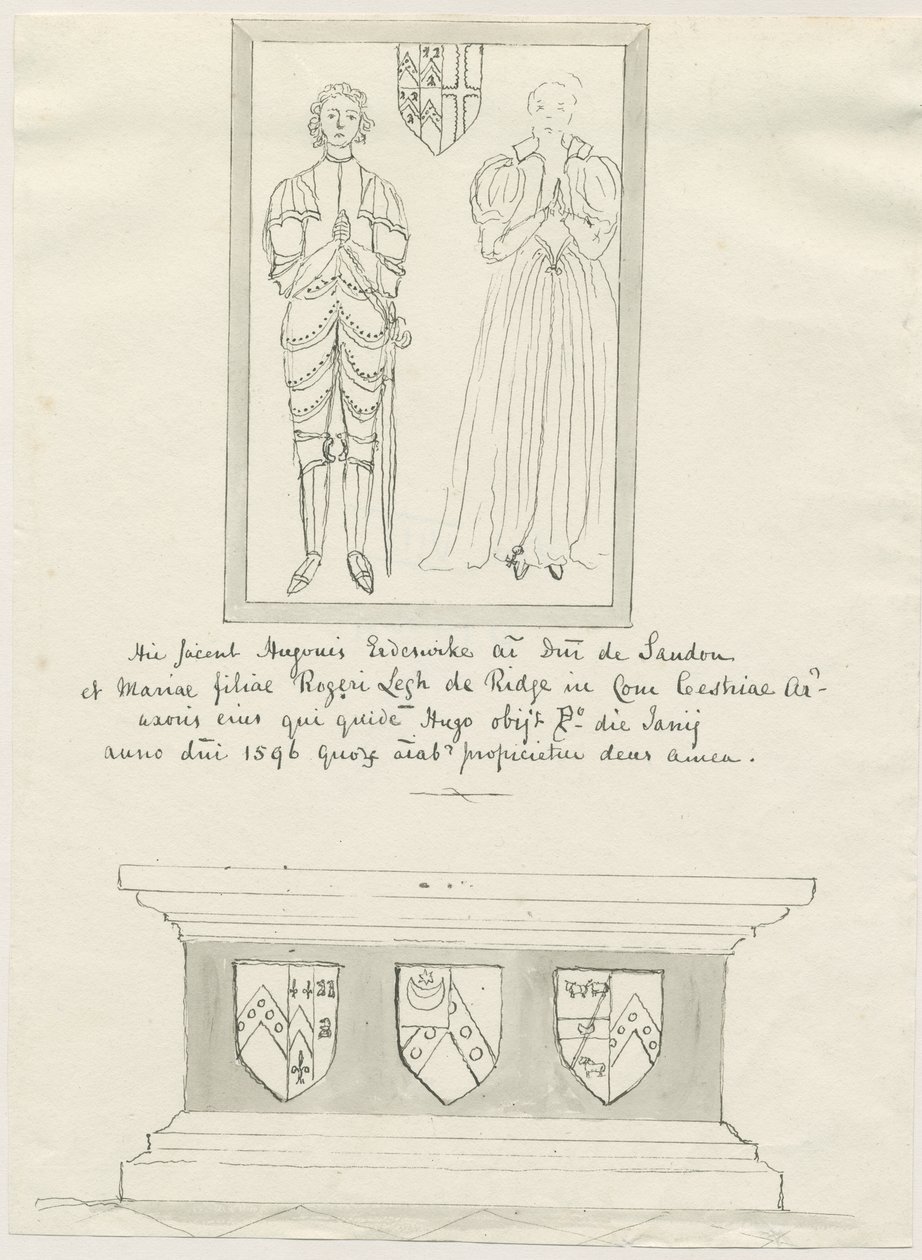 Hic Jacent Hugonis Erdeswike ar̄ Dn̄i de Sandon
et Mariae filiae Rogeri Legh de Ridge in Com Cestriae Ar
uxoris eius qui quidē Hugo obijt die Janij
anno dn̄i 1596 quoꝝ āiabꝰ propicietur deus amen.